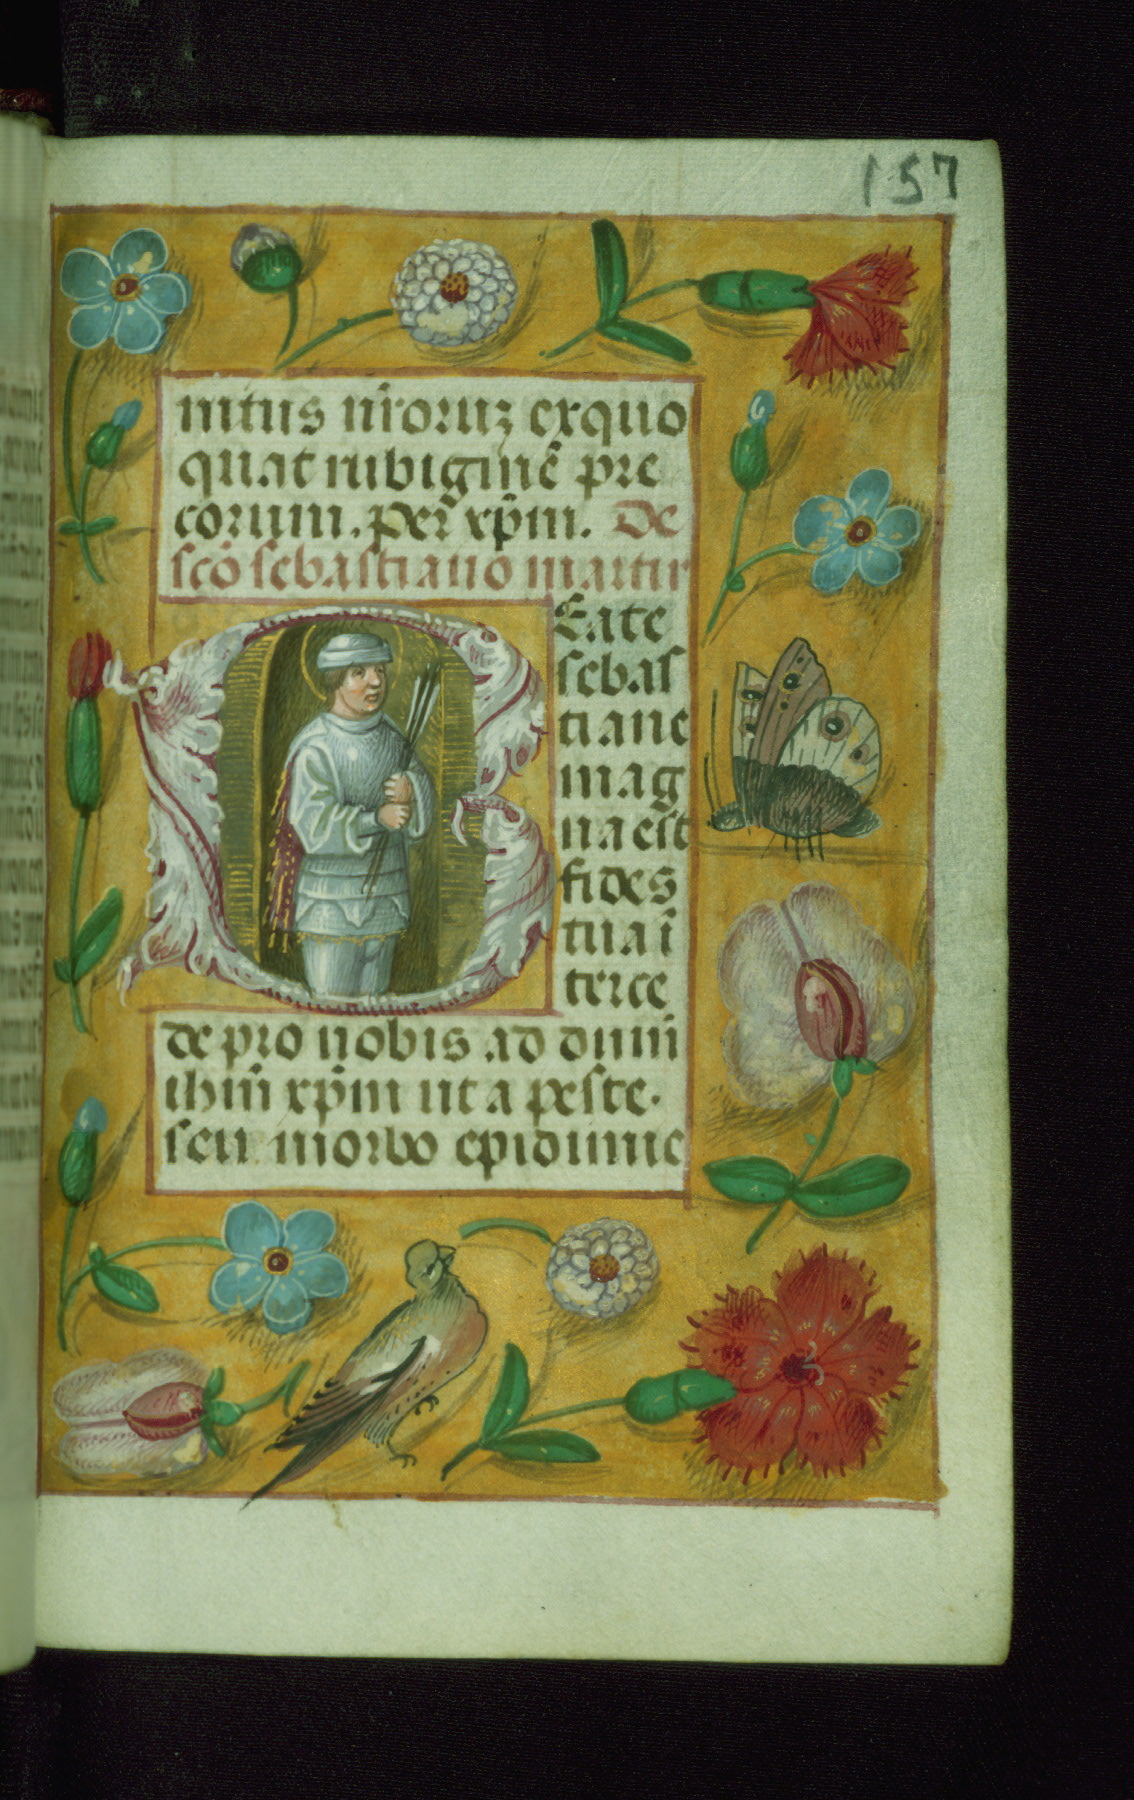 157
nitus nr̄oruꝫ exquo
quat rubiginē pre
corum. Per xp̄m. De
sc̄o sebastiano martir
Eate
sebas
tiane
mag
na est
fides
tua ī
terce
de pro nobis ad dnm̄
ihm̄ xp̄m ut a peste.
seu morbo epidimie